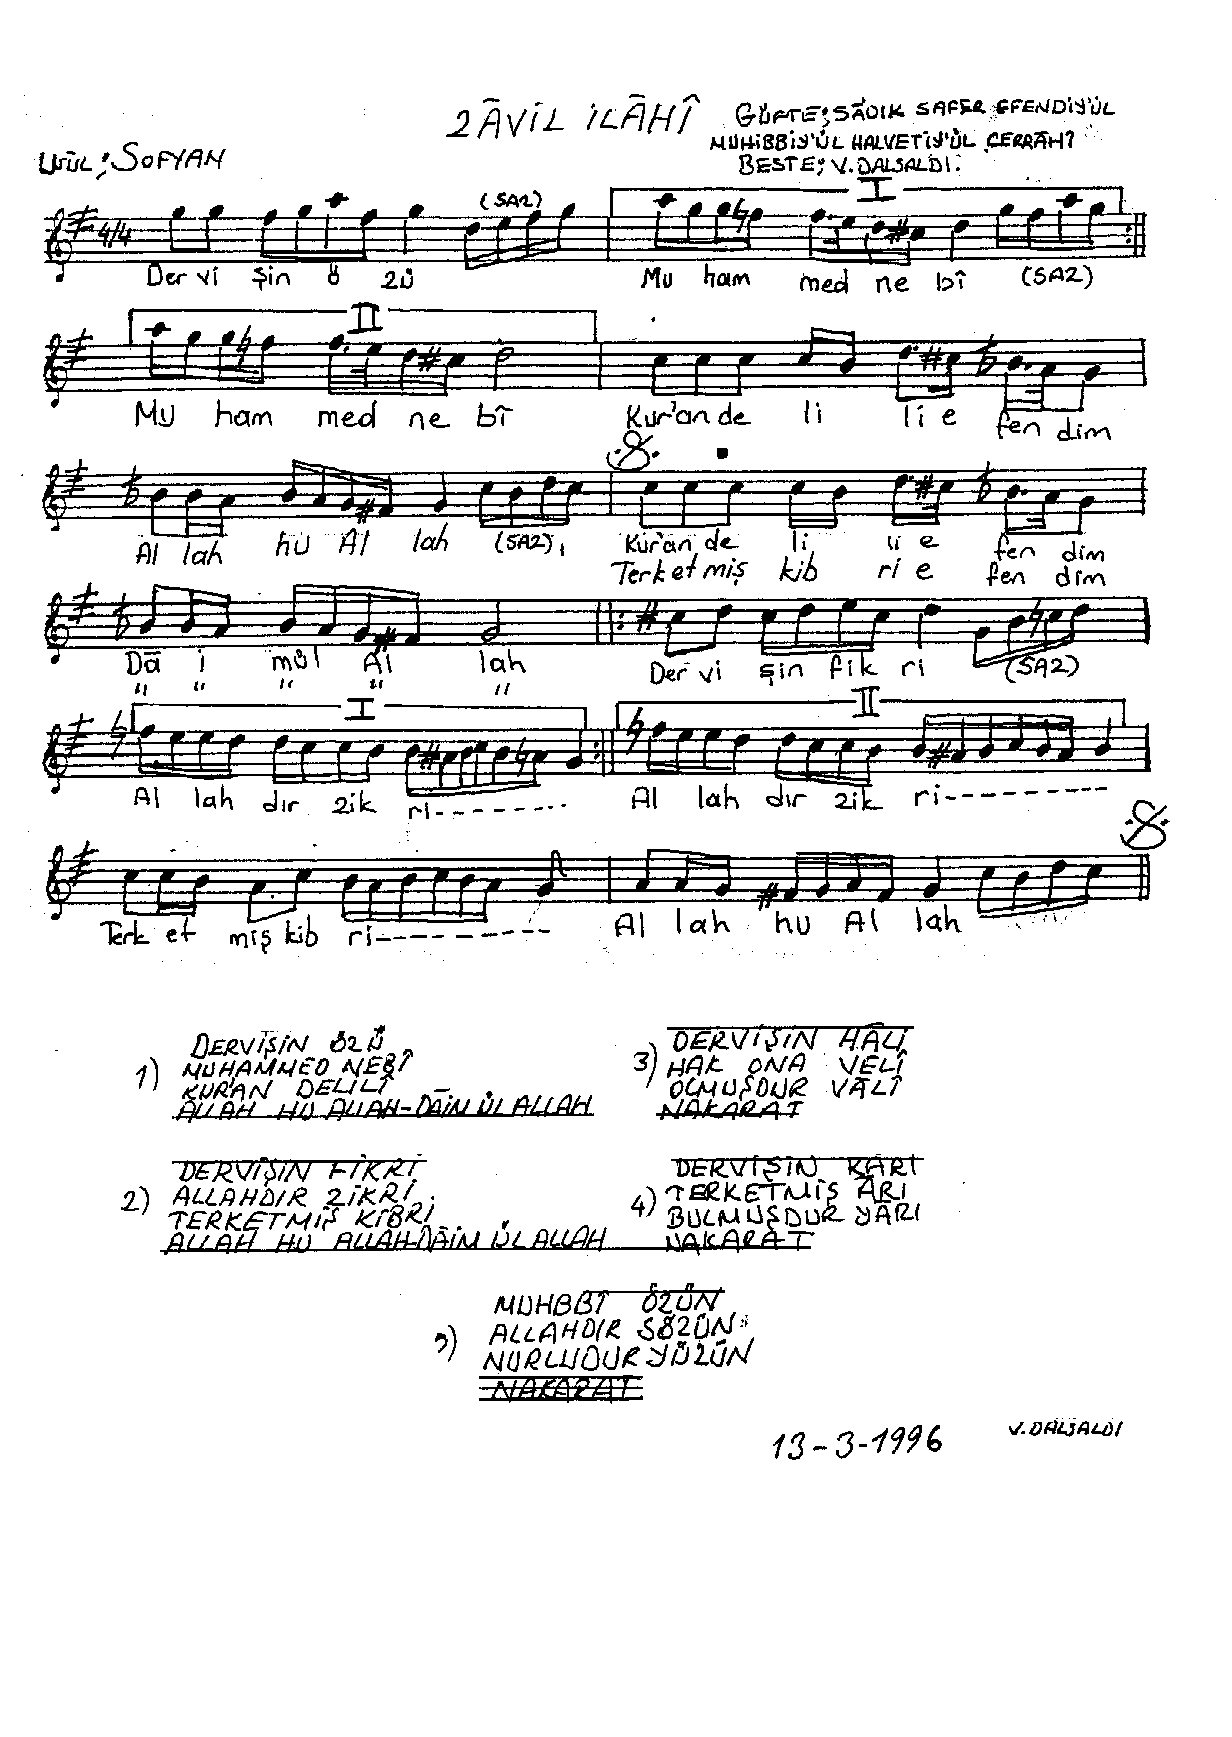 ZÂVİL İLÂHÎ
GÜFTE; SÂDIK SAFER EFENDİY'ÜL
MUHİBBİY'ÜL HALVETİY'ÜL CERRÂHÎ
USÛL; SOFYAN
BESTE; V. DALSALDI.
4/4 (SAZ) I
Der vi şin ö zü Mu ham med ne bî (SAZ)
II
Mu ham med ne bî Kur'an de li li e fen dim
Al lah hu Al lah (SAZ) Kur'an de li li e fen dim
Terk et miş kib ri e fen dim
Dâ i mül Al lah Der vi şin fik ri (SAZ)
" " " " "
I II
Al lah dır zik ri--------- Al lah dır zik ri---------
Terk et miş kib ri---------- Al lah hu Al lah
1) DERVİŞİN ÖZÜ
MUHAMMED NEBÎ
KUR'AN DELİLİ
ALLAH HU ALLAH-DÂİM ÜL ALLAH
2) DERVİŞİN FİKRİ
ALLAHDIR ZİKRİ
TERKETMİŞ KİBRİ
ALLAH HU ALLAH-DÂİM ÜL ALLAH
3) DERVİŞİN HÂLİ
HAK ONA VELÎ
OLMUŞDUR VÂLÎ
NAKARAT
4) DERVİŞİN KÂRI
TERKETMİŞ ÂRI
BULMUŞDUR YÂRI
NAKARAT
MUHBBÎ ÖZÜN
ALLAHDIR SÖZÜN
NURLUDUR YÜZÜN
NAKARAT
13-3-1996
V. DALSALDI